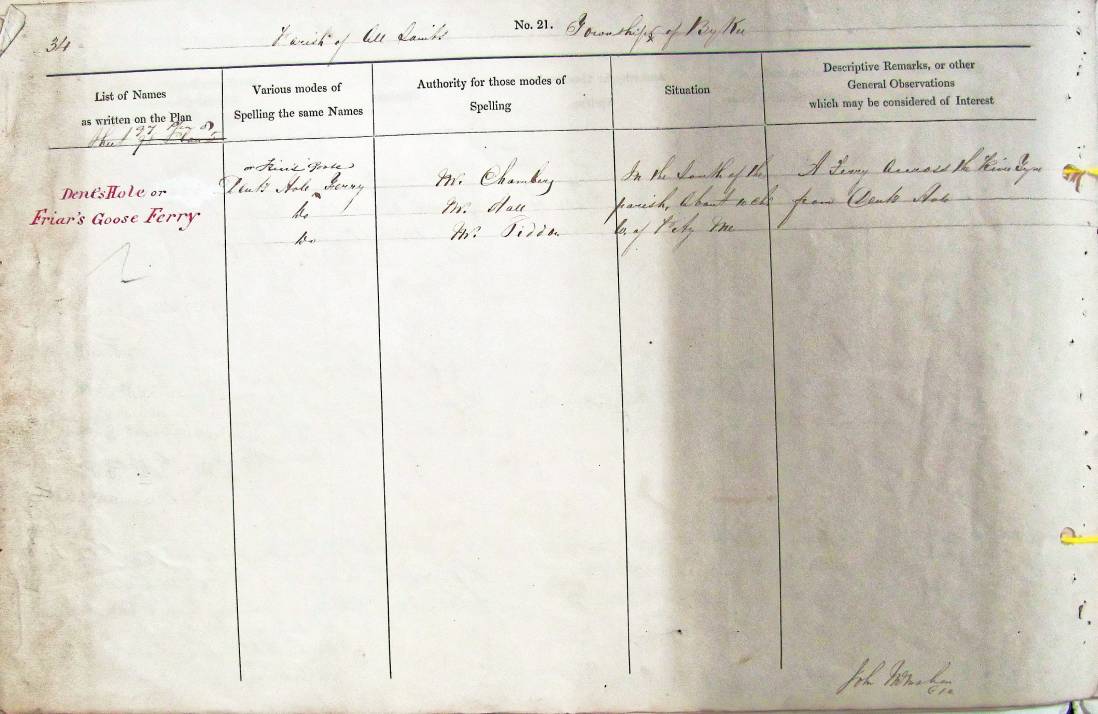 34
Parish of All Saints No. 21. Township of Byker
List of Names
as written on the Plan
Various modes of
Spelling the same Names
Authority for those modes of
Spelling
Situation
Descriptive Remarks, or other
General Observations
which may be considered of Interest
Dent's Hole or
Friar's Goose Ferry
Dents Hole Ferry
Do
Do
Mr. Chambers
Mr. Hall
Mr. Piddon
In the South of the
parish, about
A Ferry across the River Tyne
from Dents Hole
John McMahon